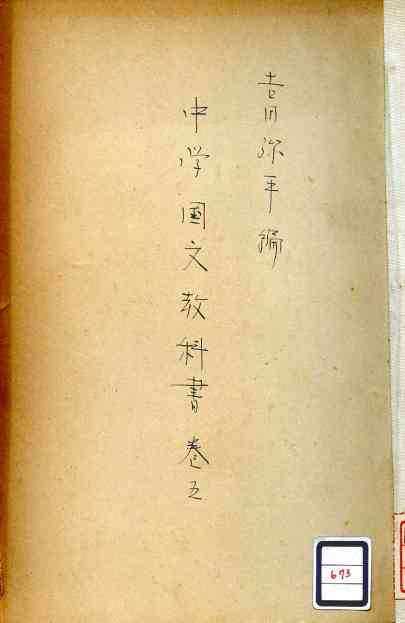 吉田弥平編
中学国文教科書 巻五
673